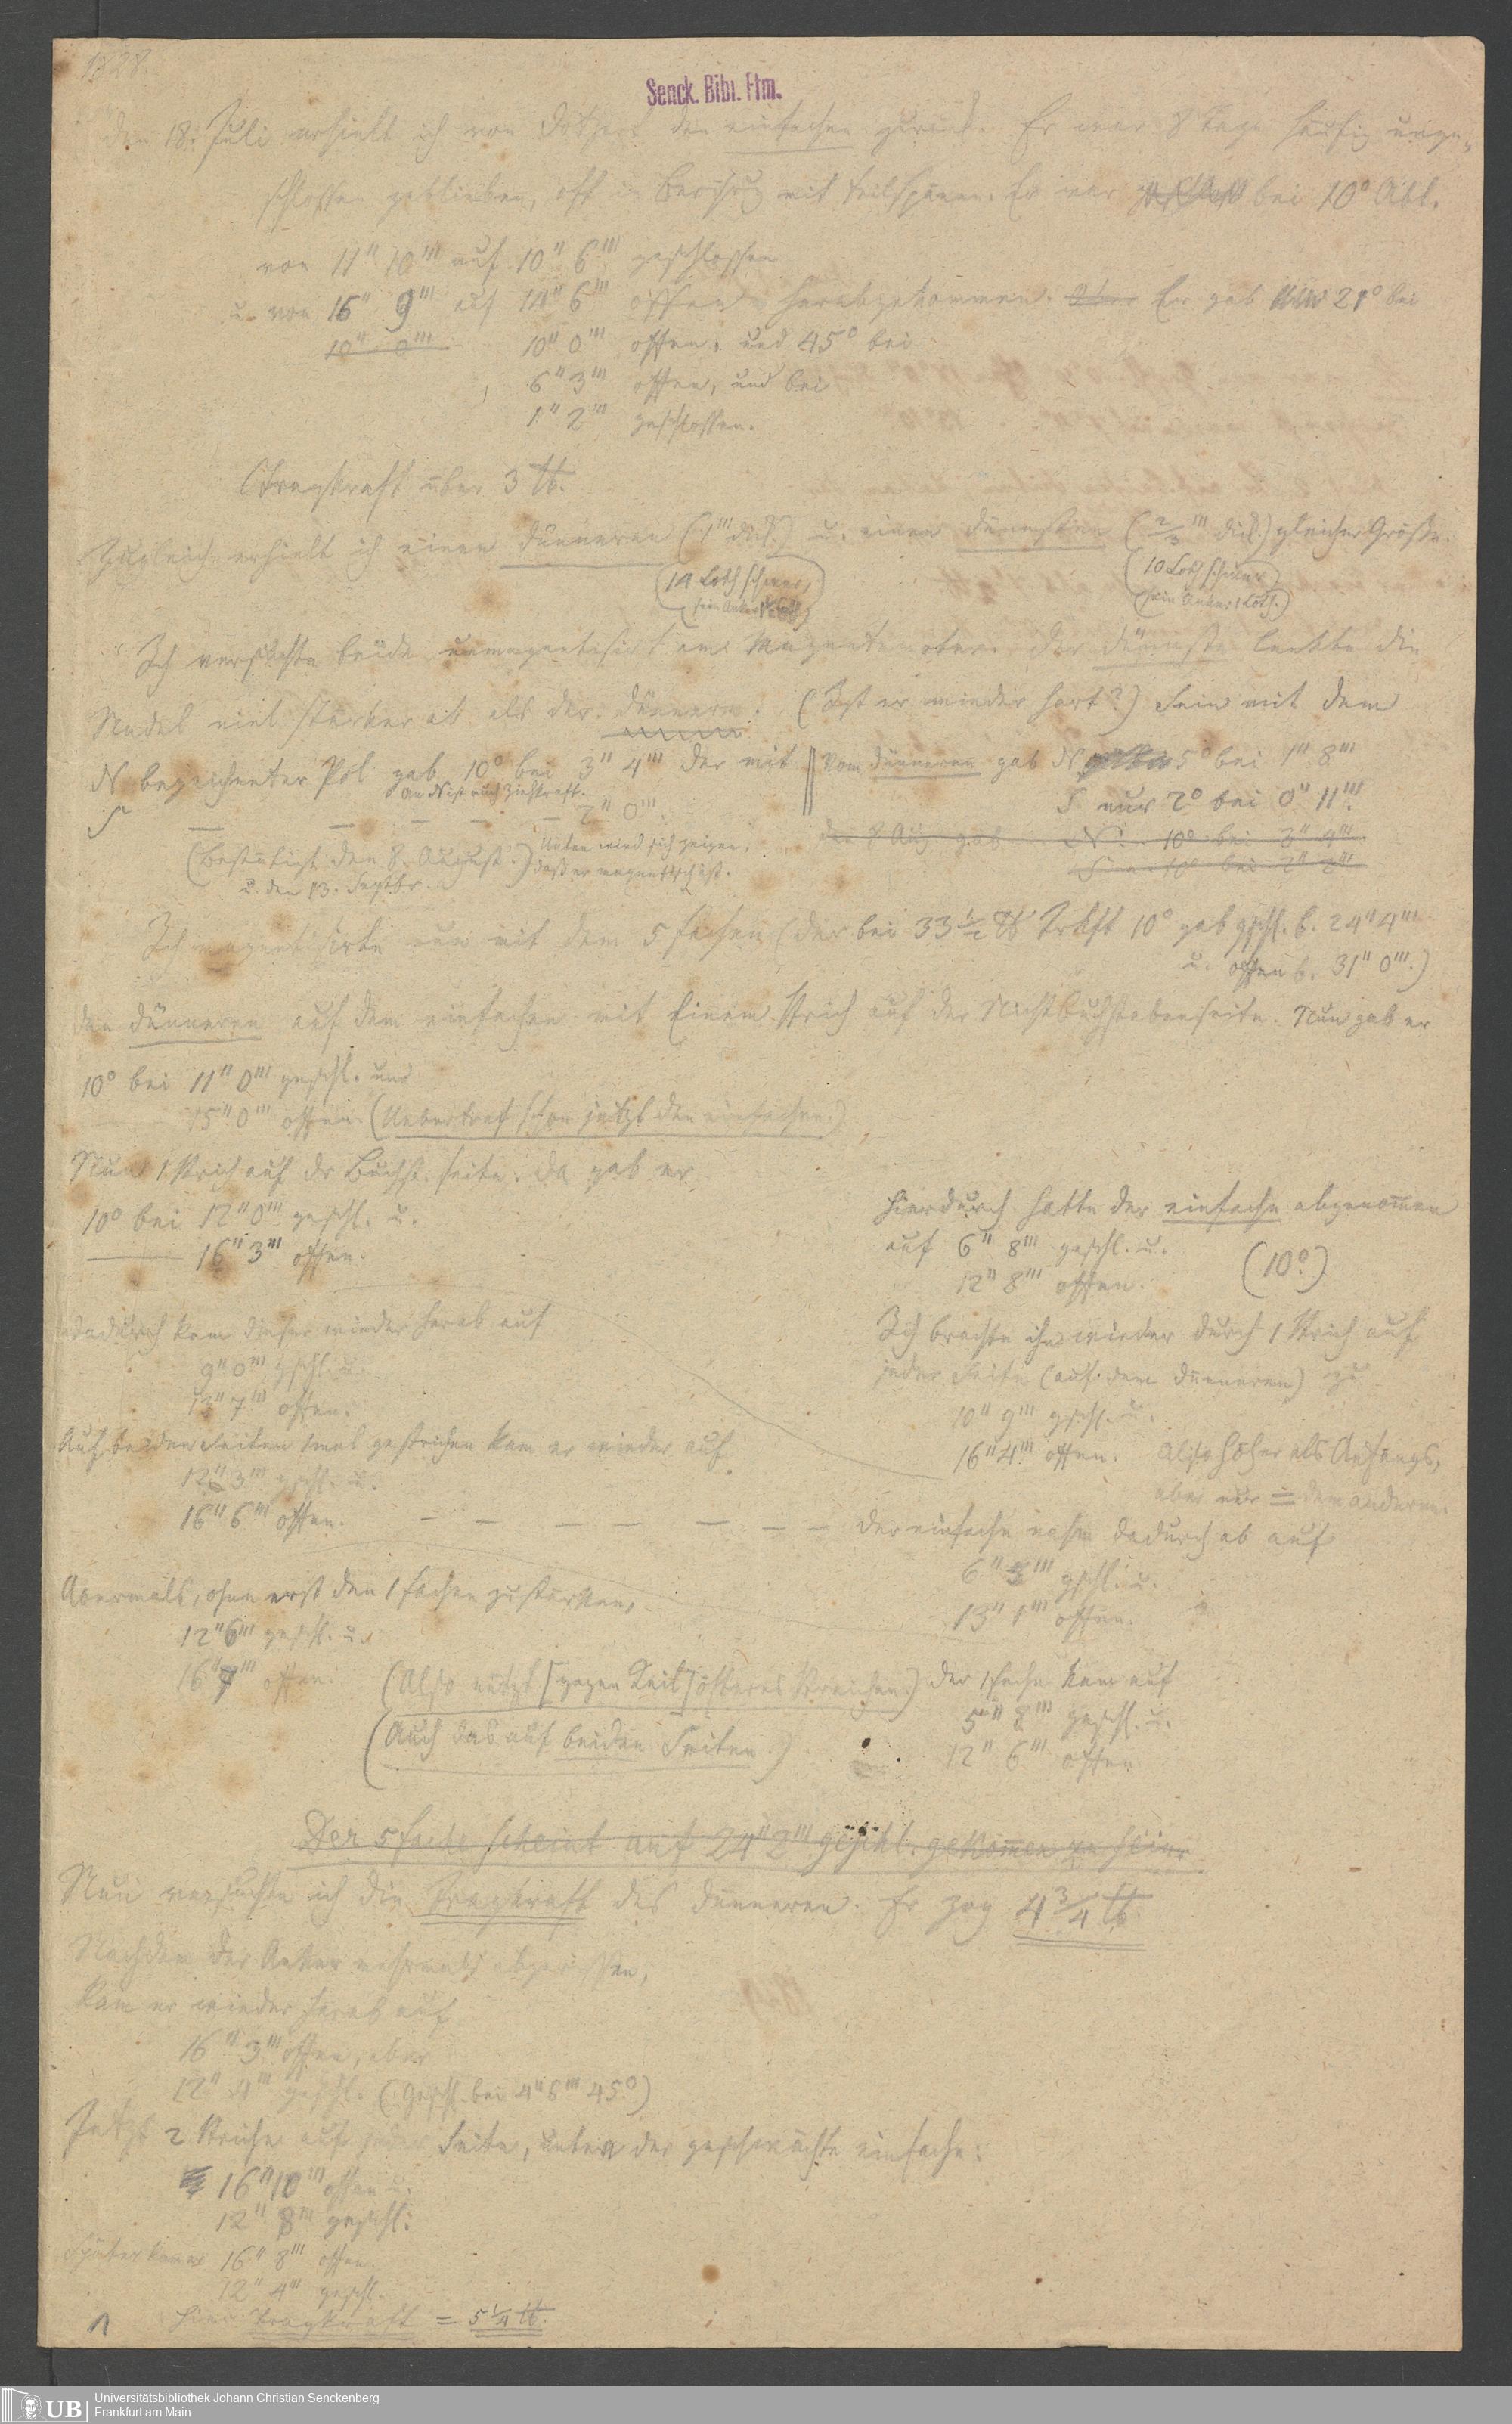 1828.
Senck. Bibl. Ffm.
den 18. Juli erhielt ich von den einfachen zurück. Er war 8 Tage häufig unge-
schlossen geblieben, oft in Berührg mit Feilspänen. Er war bei 10° Abl.
von 11" 10''' auf 10" 6''' geschlossen
u. von 15" 9''' auf 14" 6''' offen herabgekommen. Er gab nun 21° bei
10" 0'''
10" 0''' offen, und 45° bei
6" 3''' offen, und bei
1" 2''' geschlossen.
Tragkraft über 3 ℔.
Zugleich erhielt ich einen dünneren (1''' dick.) u. einen dünnsten (2/3''' dick.) gleicher Größe.
(14 Loth schwer,
sein Anker Loth)
(10 Loth schwer
sein Anker 1 Loth.)
Ich versuchte beide unmagnetisirt am Magnetometer. der dünnste lenkte die
Nadel viel stärker ab als der dünnere. (Ist er minder hart?) Sein mit dem
N bezeichneter Pol gab 10° bei 3" 4''' der mit
An N ist auch Ziehkraft.
S — — — — — 2" 0'''.
vom dünneren gab N 5° bei 1" 8'''
S nur 2° bei 0" 11'''.
den 8 Aug. gab N. 10° bei 3" 4'''
S 10° bei 2" 2'''
(bestätigt den 8. August.) Unten wird sich zeigen,
daß er magnetisch ist.
u. den 13. Septbr.
Ich magnetisirte nun mit dem 5fachen (der bei 33 1/2 ℔ Trkft 10° gab gschl. b. 24" 4'''
u. offen b. 31" 0'''.)
den dünneren auf dem einfachen mit Einem Strich auf der Nichtbuchstabenseite. Nun gab er
10° bei 11" 0''' geschl. und
15" 0''' offen. (Uebertraf schon jetzt den einfachen.)
Nun 1 Strich auf dr Buchst. seite. da gab er
10° bei 12" 0''' geschl. u.
16" 3''' offen.
Hierdurch hatte der einfache abgenom̄en
auf 6" 8''' geschl. u.
12" 8''' offen. (10°.)
dadurch kam dieser wieder herab auf
9" 0''' gschl. u.
13" 7''' offen.
Ich brachte ihn wieder durch 1 Strich auf
jeder Seite (auf dem dünneren) zu
10" 9''' gschl. u.
16" 4''' offen. Also höher als Anfangs,
aber nur = dem anderen.
Auf beiden Seiten 1mal gestrichen kam er wieder auf
12" 3''' gschl. u.
16" 6''' offen. — — — — — — —
der einfache nahm dadurch ab auf
6" 3''' gschl. u.
13" 1''' offen.
Abermals, ohne erst den 1fachen zu stärken,
12" 6''' geschl. u.
16" 7''' offen. (Also nützt [gegen Keil] öfteres Streichen.)
(Auch das auf beiden Seiten.)
der 1fache kam auf
5" 8''' geschl. u.
12" 6''' offen
Der 5fache scheint auf 24" 2''' geschl. gekom̄en zu sein
Nun versuchte ich die Tragkraft des dünneren. Er zog 4 3/4 ℔.
Nachdem der Anker mehrmals abgerissen,
kam er wieder herab auf
16" 3''' offen, aber
12" 4''' geschl. (geschl. bei 4" 6''' 45°)
Jetzt 2 Striche auf jeder Seite, unten der geschwächte einfache:
16" 10''' offen u.
12" 8''' geschl.
Später kam er 16" 8''' offen.
12" 4''' geschl.
Hier Tragkraft = 5 1/4 ℔.
1
UB
Universitätsbibliothek Johann Christian Senckenberg
Frankfurt am Main